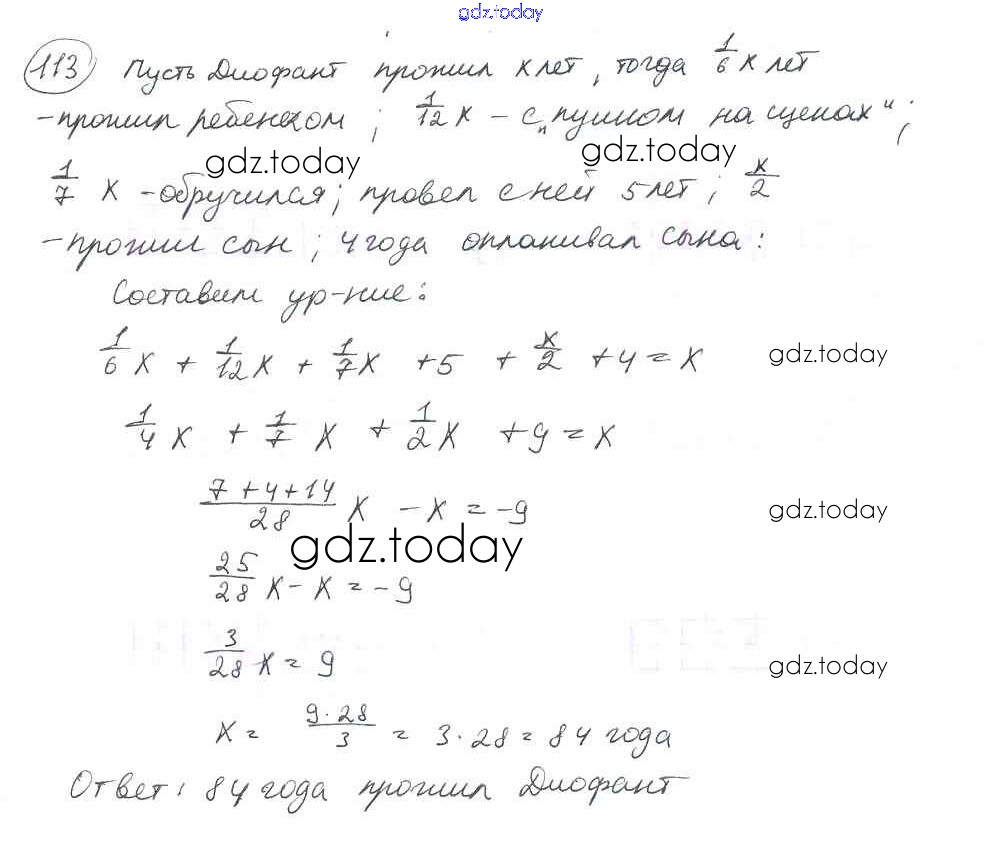 gdz.today
113 Пусть Диофант прожил x лет, тогда 1/6 x лет
- прожил ребенком; 1/12 x - с „пушком на щеках";
gdz.today gdz.today
1/7 x - обручился; провел с ней 5 лет; x/2
- прожил сын; 4 года оплакивал сына:
Составим ур-ние:
1/6 x + 1/12 x + 1/7 x + 5 + x/2 + 4 = x
gdz.today
1/4 x + 1/7 x + 1/2 x + 9 = x
(7+4+14)/28 x - x = -9
gdz.today
gdz.today
25/28 x - x = -9
3/28 x = 9
gdz.today
x = (9·28)/3 = 3·28 = 84 года
Ответ: 84 года прожил Диофант